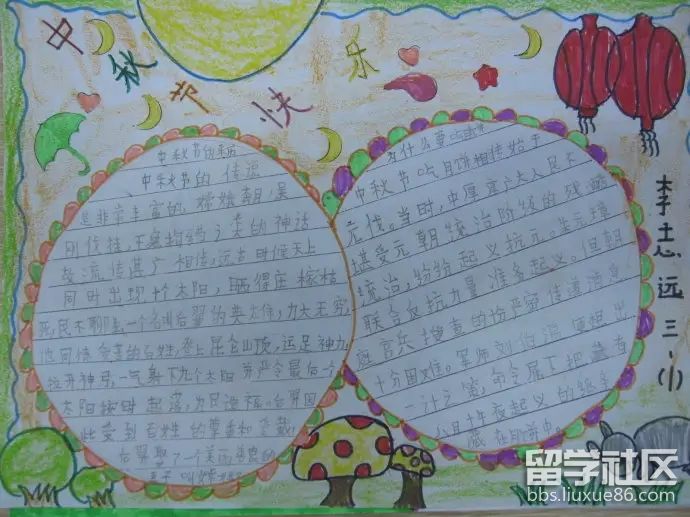 中秋节快乐
中秋节的来历
中秋节的传说
是非常丰富的,嫦娥奔月,吴
刚伐桂,之类的神话
故流传甚广相传,远古时候天上
同时出现十太阳,晒得庄稼枯
死,民不聊生,一个名叫后羿的英大伟,力大无穷,
他同情受害的百姓,登上昆仑山顶,运足神力,
拉开神弓,一气射下九个太阳 并严令最后一个
太阳按时起落,为民造福。后羿因
此受到百姓的尊重和爱戴,
后羿娶了一个美丽善良的
妻子 叫嫦娥
为什么要吃月饼
中秋节吃月饼相传始于
元代。当时,中原广大人民不
堪受元朝统治阶级的残酷
统治,纷纷起义抗元。朱元璋
联合反抗力量准备起义。但朝
庭官兵搜查的份严密传递消息
十分困难。军师刘伯温便想出
一计之策,命令属下把藏有
八月十五夜起义的
藏在
李志远三(1)
留学社区
bbs.liuxue86.com